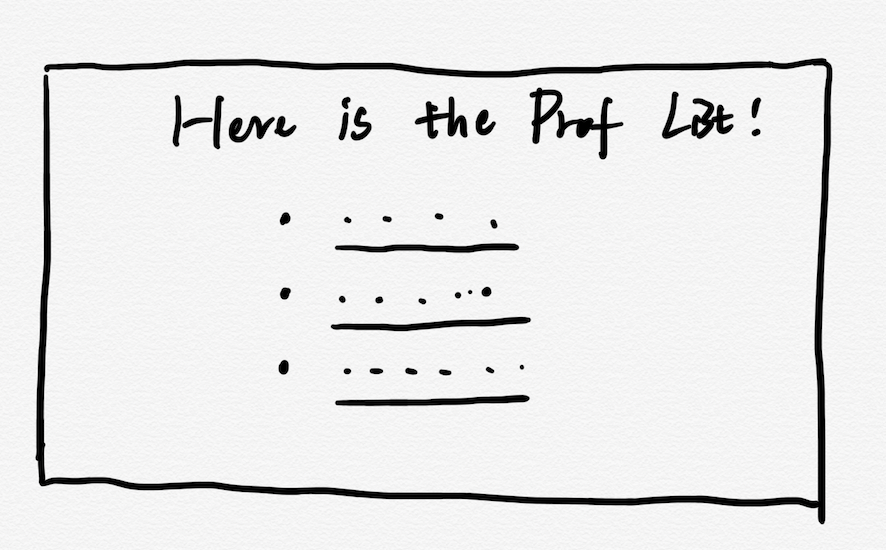 Here is the Prof List!